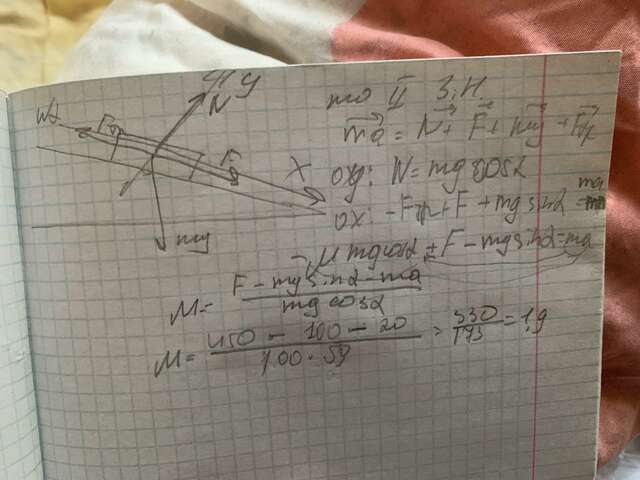 y
N
Fтр
F
X
mg
по II З.Н
ma = N + F + mg + Fтр
oy: N = mg cosα
ox: -Fтр + F + mg sinα = ma
μ mg cosα ± F - mg sinα = ma
M = F - mg sinα - ma / mg cosα
M = 450 - 100 - 20 /
= 1,9